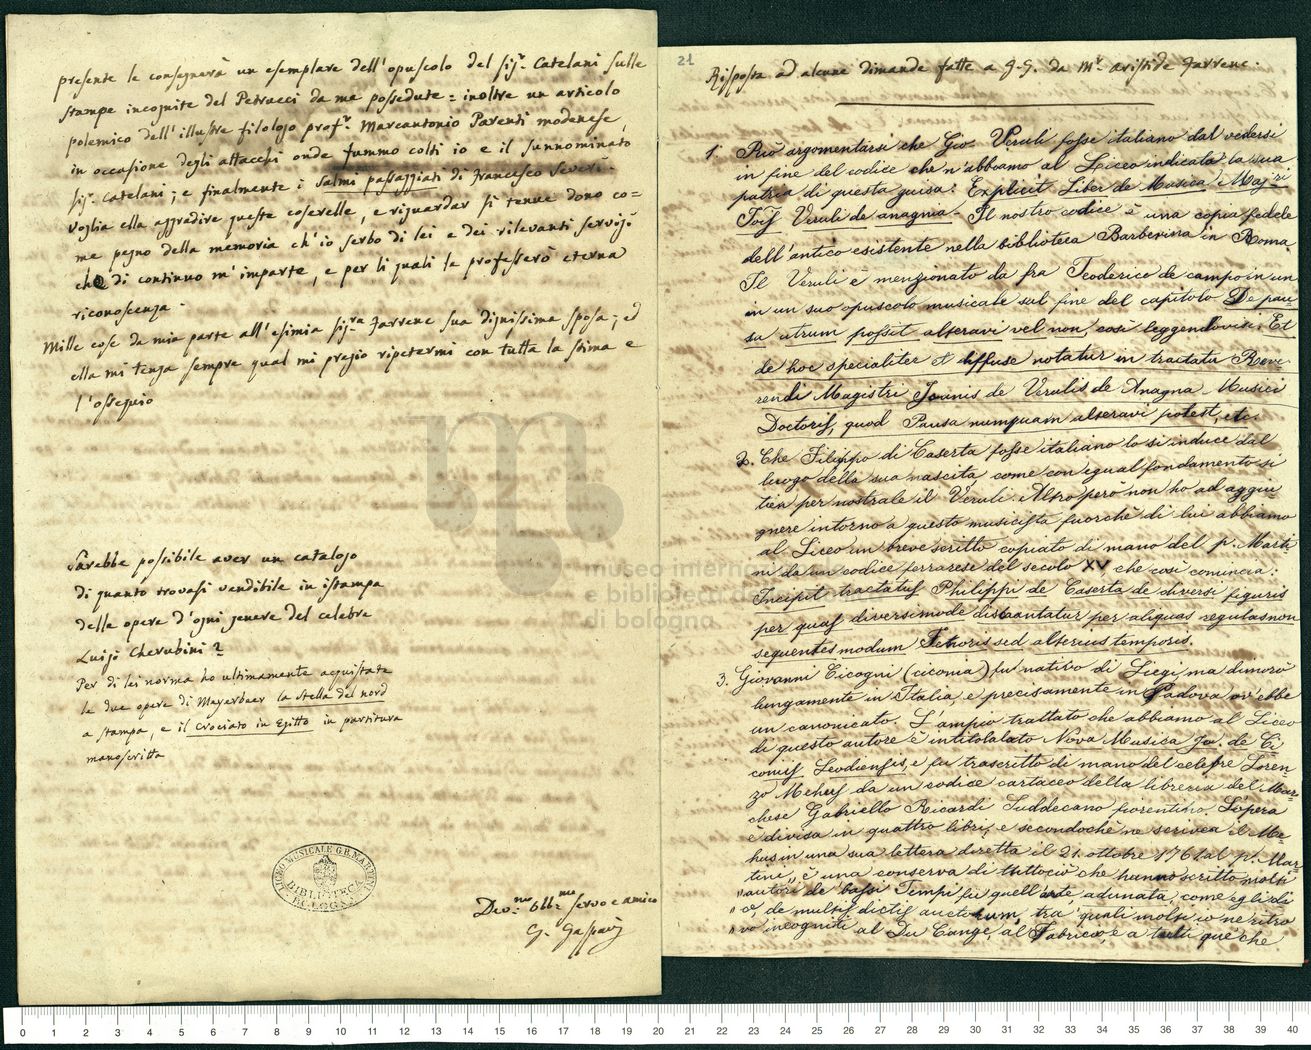 presente le consegnerà un esemplare dell'opuscolo del sig.r Catelani sulle
stampe incognite del Petrucci da me possedute = inoltre un articolo
polemico dell'illustre filologo prof.r Marcantonio Parenti modenese,
in occasione degli attacchi onde fummo colti io e il sunnominato
sig.r Catelani; e finalmente i Salmi passaggiati di Francesco Severi.
Voglia ella aggradire queste coserelle, e riguardar sì tenue dono co=
me pegno della memoria ch'io serbo di lei e dei rilevanti servigj
che di continuo m'imparte, e per li quali le professerò eterna
riconoscenza.
Mille cose da mia parte all'esimia sig.ra Farrenc sua dignissima sposa; ed
ella mi tenga sempre qual mi pregio ripetermi con tutta la stima e
l'ossequio
Sarebbe possibile aver un catalogo
di quanto trovasi vendibile in istampa
delle opere d'ogni genere del celebre
Luigi Cherubini?
Per di lei norma ho ultimamente acquistate
le due opere di Mayerbeer la stella del nord
a stampa, e il Crociato in Egitto in partitura
manoscritta
LICEO MUSICALE G.B. MARTINI
BIBLIOTECA
BOLOGNA
Dev.mo obb.mo servo e amico
G. Gaspari
21
Risposta ad alcune dimande fatte a G. G. da M.r Aristide Farrenc.
1. Può argomentarsi che Gio. Veruli fosse italiano dal vedersi
in fine del codice che n'abbiamo al Liceo indicata la sua
patria di questa guisa: Explicit Liber de Musica Mag.ri
Jo:is Veruli de anagnia - Il nostro codice è una copia fedele
dell'antico esistente nella biblioteca Barberina in Roma
Il Veruli è menzionato da fra Teoderico de campo in un
in un suo opuscolo musicale sul fine del capitolo De pau-
sa utrum possit alterari vel non, così leggendovisi: Et
de hoc specialiter et diffuse notatur in tractatu Reve-
rendi Magistri Joannis de Verulis de Anagna Musici
Doctoris, quod Pausa numquam alterari potest, etc.
2. Che Filippo di Caserta fosse italiano lo si induce dal
luogo della sua nascita, come con egual fondamento si
tien per nostrale il Veruli. Altro però non ho ad aggiu
gnere intorno a questo musicista fuorchè di lui abbiamo
al Liceo un breve scritto copiato di mano del p. Marti
ni da un codice ferrarese del secolo XV, che così comincia:
Incipit tractatus Philippi de Caserta de diversis figuris
per quas diversimode discantatur per aliquas regulas non
sequentes modum Tenoris sed alterius temporis.
3. Giovanni Cicogni (Ciconia) fu nativo di Liegi, ma dimorò
lungamente in Italia, e precisamente in Padova ov'ebbe
un canonicato. L'ampio trattato che abbiamo al Liceo
di questo autore è intitolalato Nova Musica Jo. de Ci
coniis Leodiensis, e fu trascritto di mano del celebre Loren-
zo Mehus da un codice cartaceo della libreria del Mar=
chese Gabriello Riccardi Suddecano fiorentino. L'opera
è divisa in quattro libri, e secondochè ne scrivea il Me-
hus in una sua lettera diretta il 21. ottobre 1761 al p. Mar-
tini, „ è una conserva di tuttociò che hanno scritto molti
„ autori de' bassi Tempi su quell'arte, adunata, come egli di
„ ce, de multis dictis auctorum, tra' quali molti io ne ritro
„ vo incogniti al Du Cange, al Fabricio, e a tutti que' che
museo internazionale
e biblioteca della musica
di bologna
0 1 2 3 4 5 6 7 8 9 10 11 12 13 14 15 16 17 18 19 20 21 22 23 24 25 26 27 28 29 30 31 32 33 34 35 36 37 38 39 40